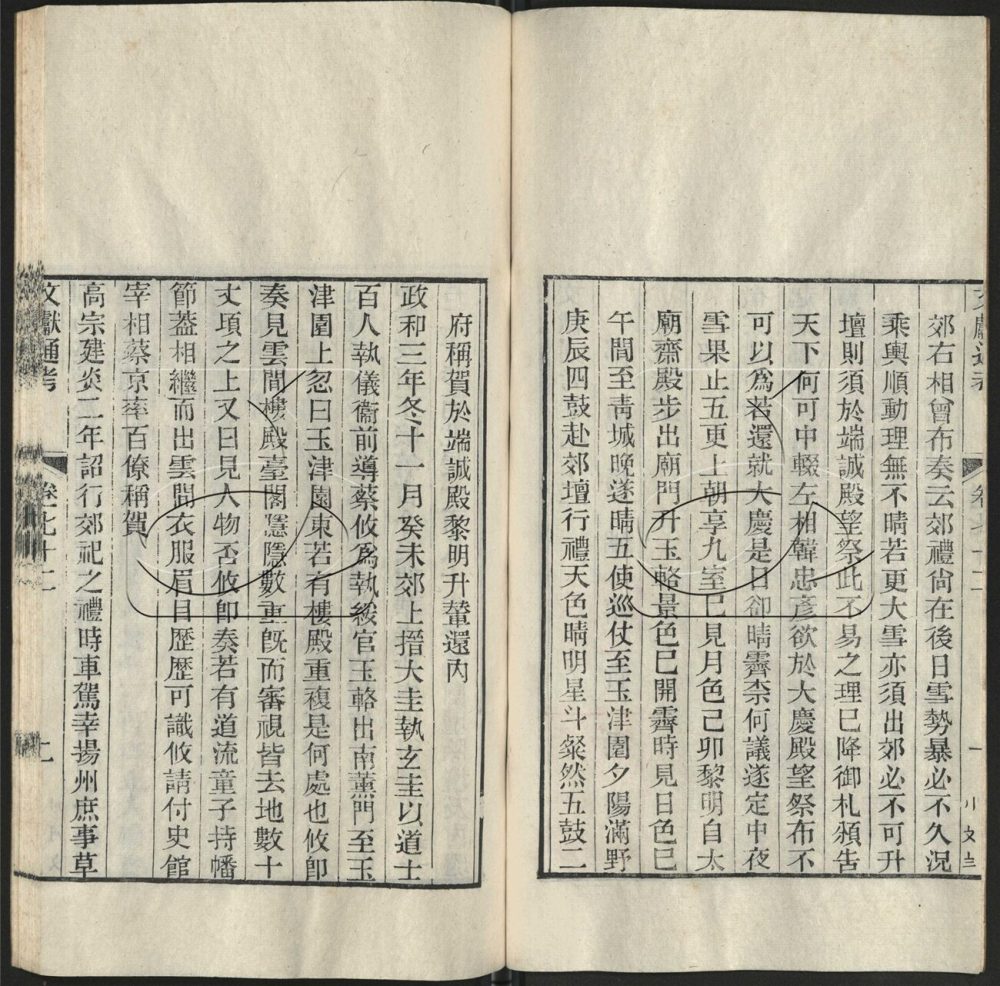 郊右相曾布奏云郊禮尙在後日雪勢暴必不久況
乘輿順動理無不晴若更大雪亦須出郊必不可升
壇則須於端誠殿望祭此不易之理已降御札頒告
天下何可中輟左相韓忠彥欲於大慶殿望祭布不
可以爲若還就大慶是日卻晴霽柰何議遂定中夜
雪果止五更上朝享九室已見月色己卯黎明自太
廟齋殿步出廟門升玉輅景色已開霽時見日色巳
午間至靑城晚遂晴五使巡仗至玉津園夕陽滿野
庚辰四鼓赴郊壇行禮天色晴明星斗粲然五鼓二
府稱賀於端誠殿黎明升輦還內
政和三年冬十一月癸未郊上搢大圭執玄圭以道士
百人執儀衞前導蔡攸爲執綏官玉輅出南薰門至玉
津園上忽曰玉津園東若有樓殿重複是何處也攸卽
奏見雲間樓殿臺閣隱隱數重旣而審視皆去地數十
丈頃之上又曰見人物否攸卽奏若有道流童子持幡
節蓋相繼而出雲間衣服眉目歷歷可識攸請付史館
宰相蔡京率百僚稱賀
高宗建炎二年詔行郊祀之禮時車駕幸揚州庶事草
文獻通考
卷七十二